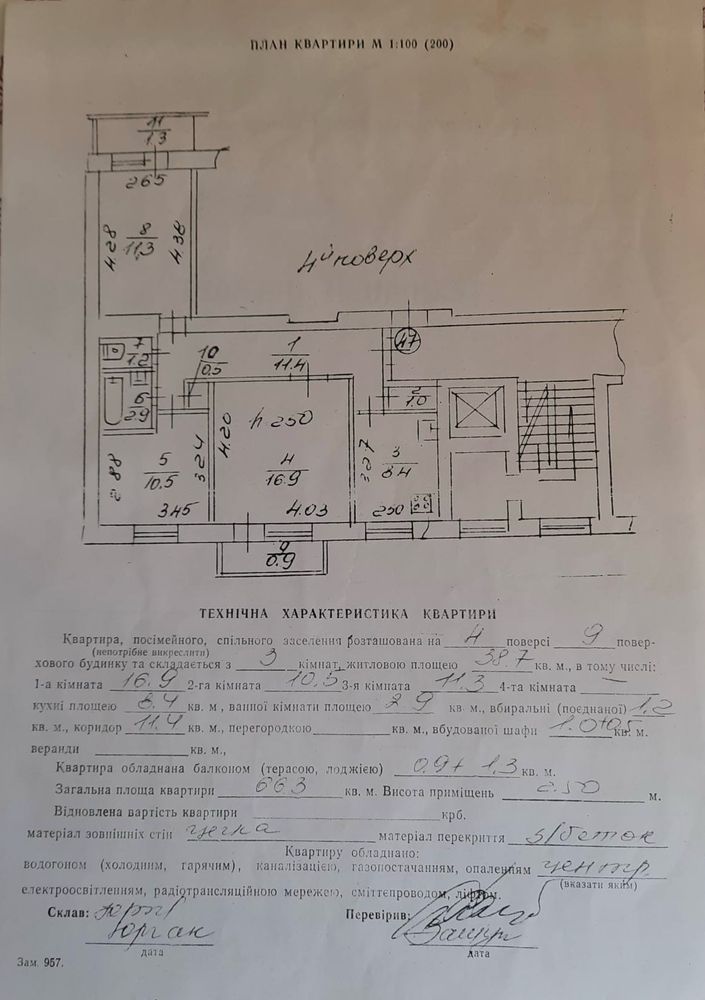 ПЛАН КВАРТИРИ М 1:100 (200)
11
1.3
265
4.28
8
11.3
4.38
4й поверх
7
1.2
10
0.5
1
11.4
47
6
2.9
2
1.0
h 250
4.20
3.27
3
8.4
5
10.5
3.24
2.88
4
16.9
345
4.03
250
9
0.9
ТЕХНІЧНА ХАРАКТЕРИСТИКА КВАРТИРИ
Квартира, посімейного, спільного заселення розташована на 4 поверсі 9 повер-
(непотрібне викреслити)
хового будинку та складається з 3 кімнат, житловою площею 38.7 кв. м., в тому числі:
1-а кімната 16.9 2-га кімната 10.5 3-я кімната 11.3 4-та кімната —
кухні площею 8.4 кв. м, ванної кімнати площею 2.9 кв. м., вбиральні (поєднаної) 1.2
кв. м., коридор 11.4 кв. м., перегородкою кв. м., вбудованої шафи 1.0+0.5 кв. м.
веранди кв. м.,
Квартира обладнана балконом (терасою, лоджією) 0.9+1.3 кв. м.
Загальна площа квартири 66.3 кв. м. Висота приміщень 2.50 м.
Відновлена вартість квартири крб.
матеріал зовнішніх стін цегла матеріал перекриття з/бетон
Квартиру обладнано:
водогоном (холодним, гарячим), каналізацією, газопостачанням, опаленням центр.
(вказати яким)
електроосвітленням, радіотрансляційною мережею, сміттєпроводом, ліфтом.
Склав: Перевірив:
дата дата
Зам. 957.